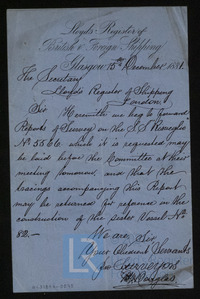 Lloyds Register of
British & Foreign Shipping
Glasgow 15th December 1881.
The Secretary
Lloyds Register of Shipping
London
Sir Herewith we beg to forward
Reports of Survey on the S.S.
No which it is requested may
be laid before the Committee at their
meeting tomorrow, and that the
tracings accompanying this Report
may be returned for reference in the
construction of the sister Vessel No
82.—
We are, Sir,
Your Obedient Servants
for Surveyors
LR